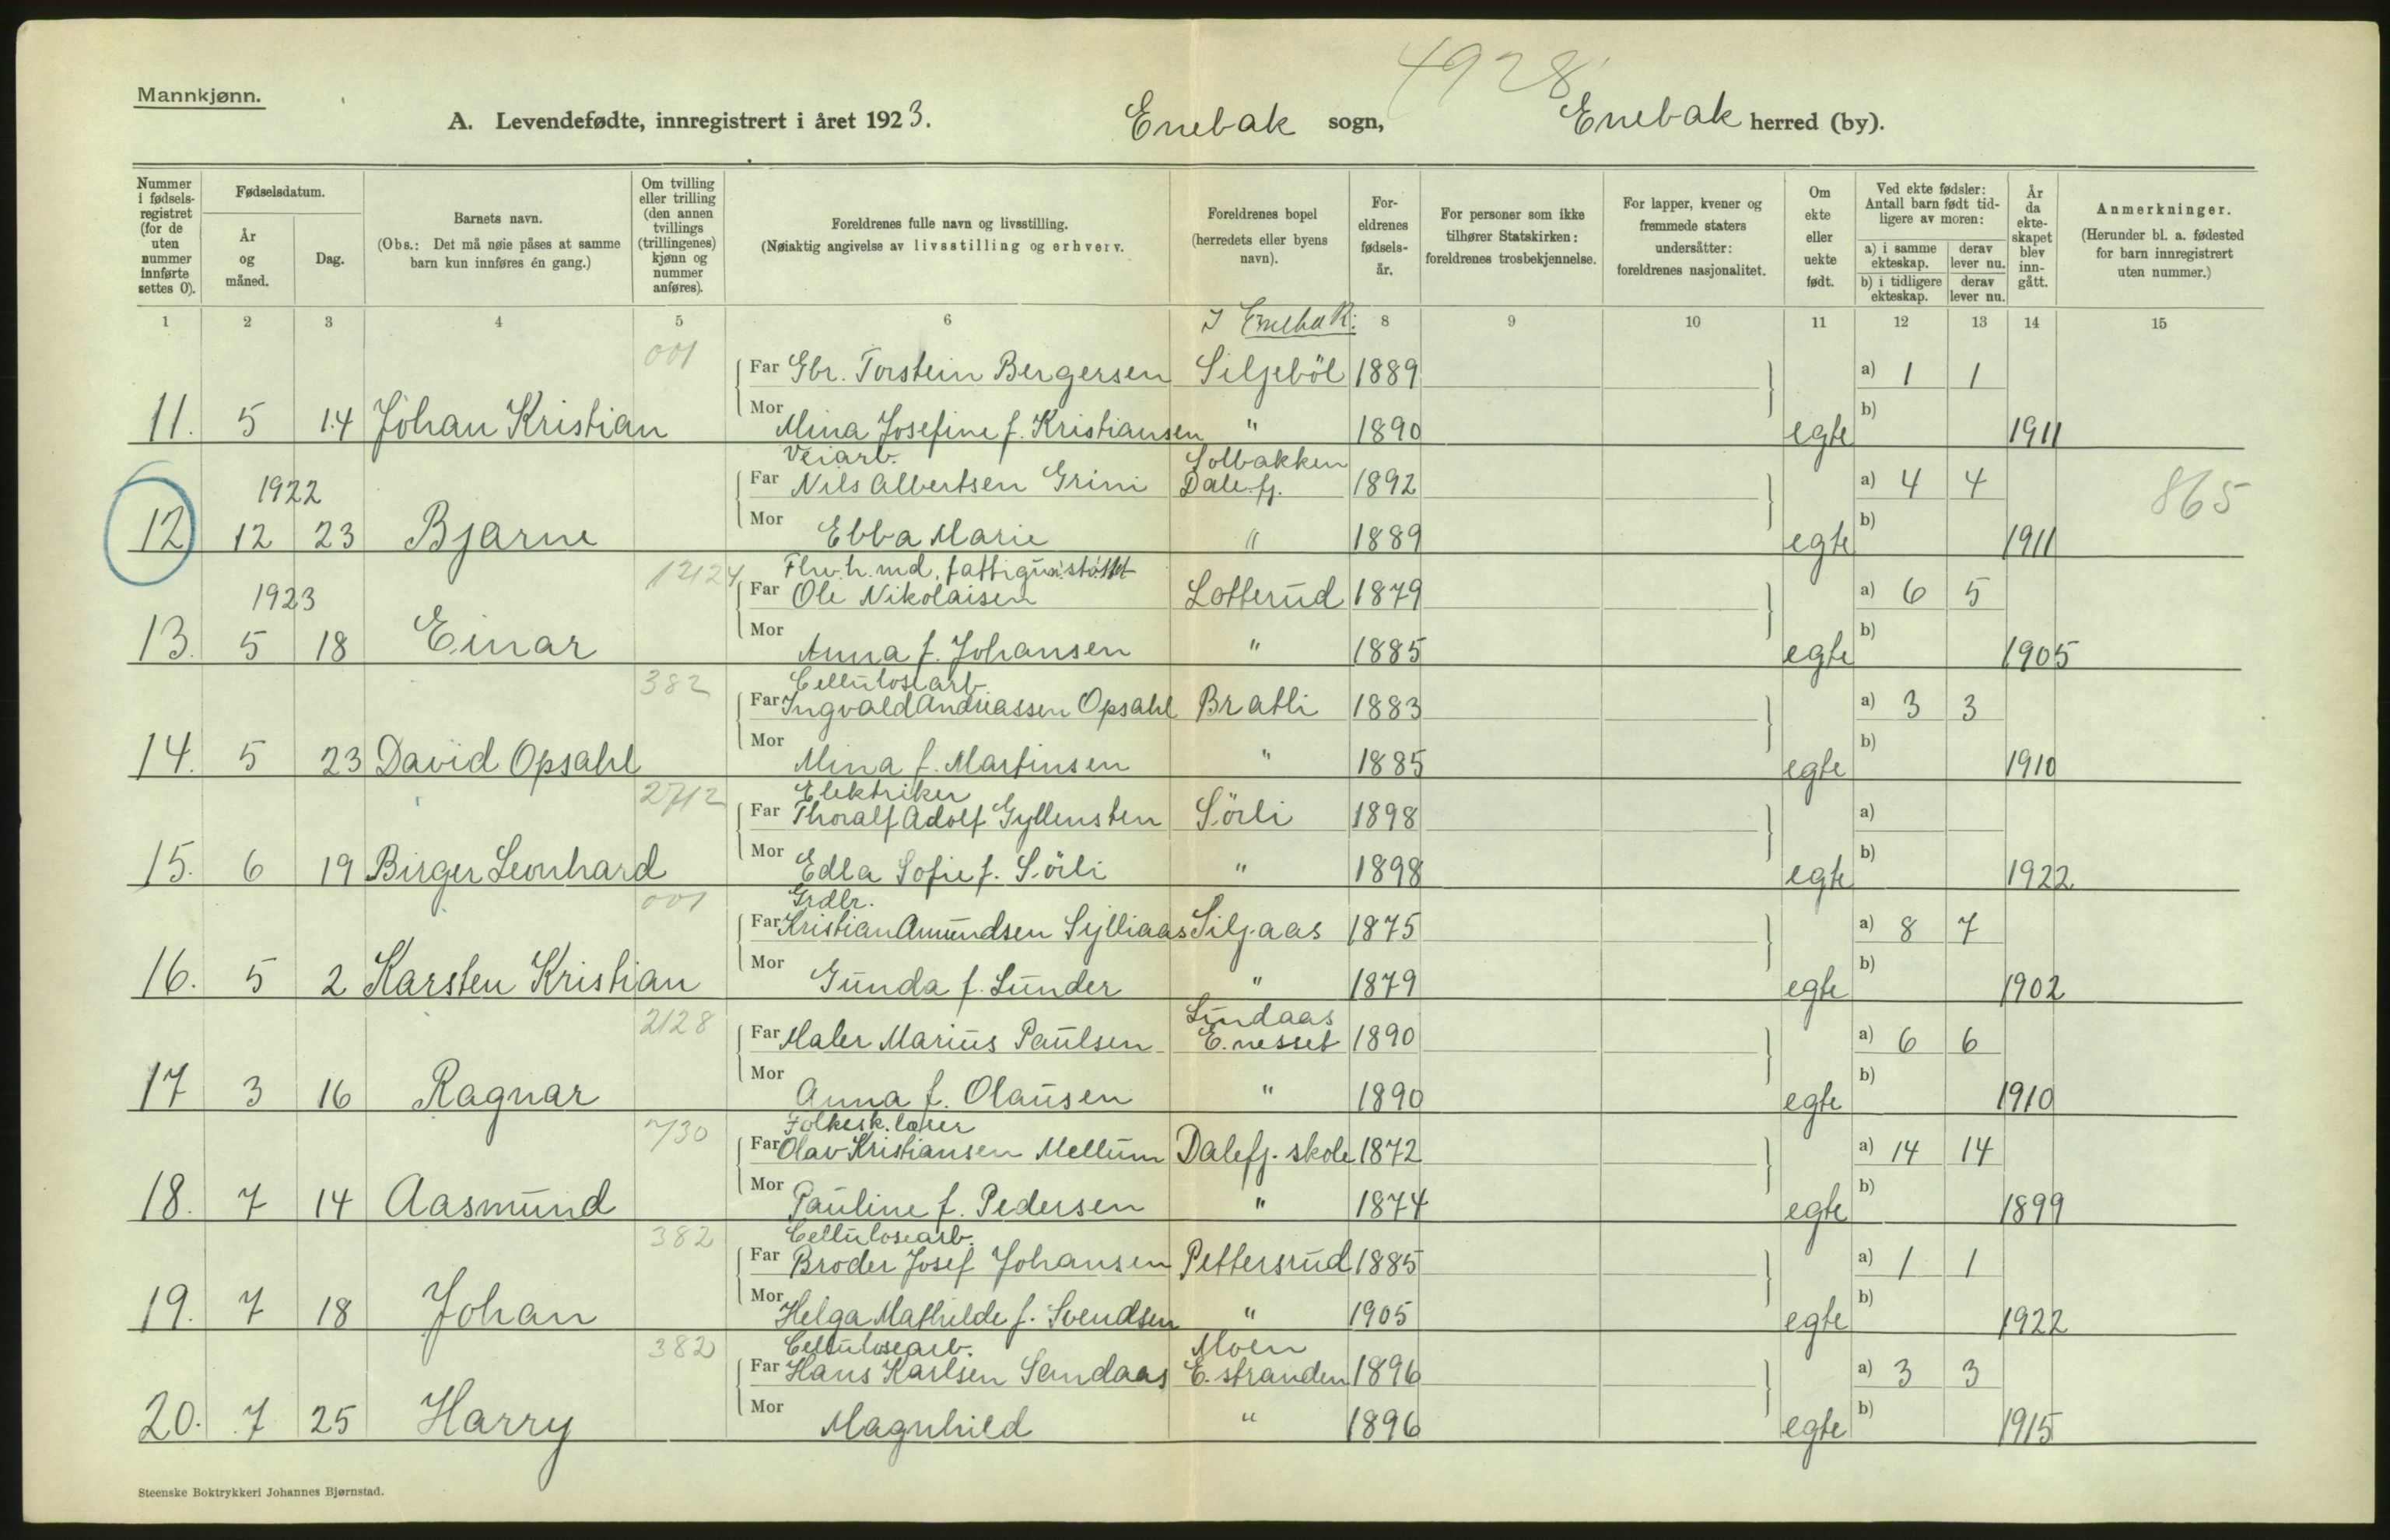 4928
Mannkjønn.
A. Levendefødte, innregistrert i året 1923. Enebak sogn, Enebak herred (by).
Nummer i fødselsregistret (for de uten nummer innførte settes 0).
Fødselsdatum.
År og måned.
Dag.
Barnets navn.
(Obs.: Det må nøie påses at samme barn kun innføres én gang.)
Om tvilling eller trilling (den annen tvillings (trillingenes) kjønn og nummer anføres).
Foreldrenes fulle navn og livsstilling.
(Nøiaktig angivelse av livsstilling og erhverv.
Foreldrenes bopel (herredets eller byens navn).
Foreldrenes fødselsår.
For personer som ikke tilhører Statskirken: foreldrenes trosbekjennelse.
For lapper, kvener og fremmede staters undersåtter: foreldrenes nasjonalitet.
Om ekte eller uekte født.
Ved ekte fødsler: Antall barn født tidligere av moren:
a) i samme ekteskap. derav lever nu.
b) i tidligere ekteskap. derav lever nu.
År da ekteskapet blev inngått.
Anmerkninger.
(Herunder bl. a. fødested for barn innregistrert uten nummer.)
1 2 3 4 5 6 I Enebak: 8 9 10 11 12 13 14 15
001
Far Gbr. Torstein Bergersen Siljeböl 1889 a) 1 1
11. 5 14 Johan Kristian Mor Mina Josefine f. Kristiansen " 1890 egte b) 1911
Veiarb. Solbakken
1922 Far Nils Albertsen Grini Dalefj. 1892 a) 4 4 865
12 12 23 Bjarne Mor Ebba Marie " 1889 egte b) 1911
12124
1923 Far Ole Nikolaisen Lotterud 1879 a) 6 5
13. 5 18 Einar Mor Anna f. Johansen " 1885 egte b) 1905
382 Cellulosearb.
Far Ingvald Andreassen Opsahl Bratli 1883 a) 3 3
14. 5 23 David Opsahl Mor Mina f. Martinsen " 1885 egte b) 1910
2712 Elektriker
Far Thoralf Adolf Gyllensten Sörli 1898 a)
15. 6 19 Birger Leonhard Mor Edla Sofie f. Sörli " 1898 egte b) 1922
001 Grdbr.
Far Kristian Amundsen Sylliaas Siljaas 1875 a) 8 7
16. 5 2 Karsten Kristian Mor Gunda f. Lunder " 1879 egte b) 1902
2128 Lundaas
Far Maler Marius Paulsen E. nesset 1890 a) 6 6
17 3 16 Ragnar Mor Anna f. Olausen " 1890 egte b) 1910
730 Folkesk. lærer
Far Olav Kristiansen Mellum Dalefj. skole 1872 a) 14 14
18. 7 14 Aasmund Mor Pauline f. Pedersen " 1874 egte b) 1899
382 Cellulosearb.
Far Broder Josef Johansen Pettersrud 1885 a) 1 1
19. 7 18 Johan Mor Helga Mathilde f. Svendsen " 1905 egte b) 1922
382 Cellulosearb. Moen
Far Hans Karlsen Sandaas E. stranden 1896 a) 3 3
20. 7 25 Harry Mor Magnhild " 1896 egte b) 1915
Steenske Boktrykkeri Johannes Bjørnstad.